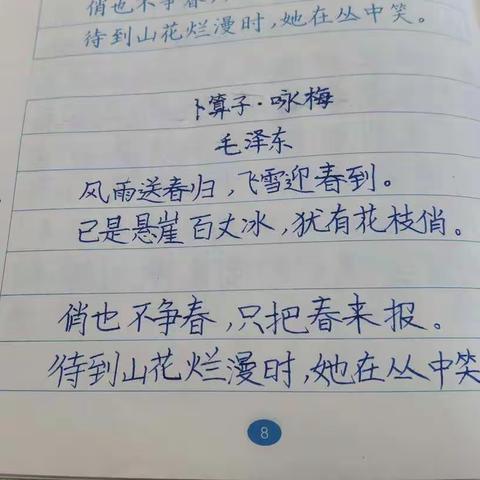 俏也不争春,
待到山花烂漫时,她在丛中笑。
卜算子·咏梅
毛泽东
风雨送春归,飞雪迎春到。
已是悬崖百丈冰,犹有花枝俏。
俏也不争春,只把春来报。
待到山花烂漫时,她在丛中笑
8